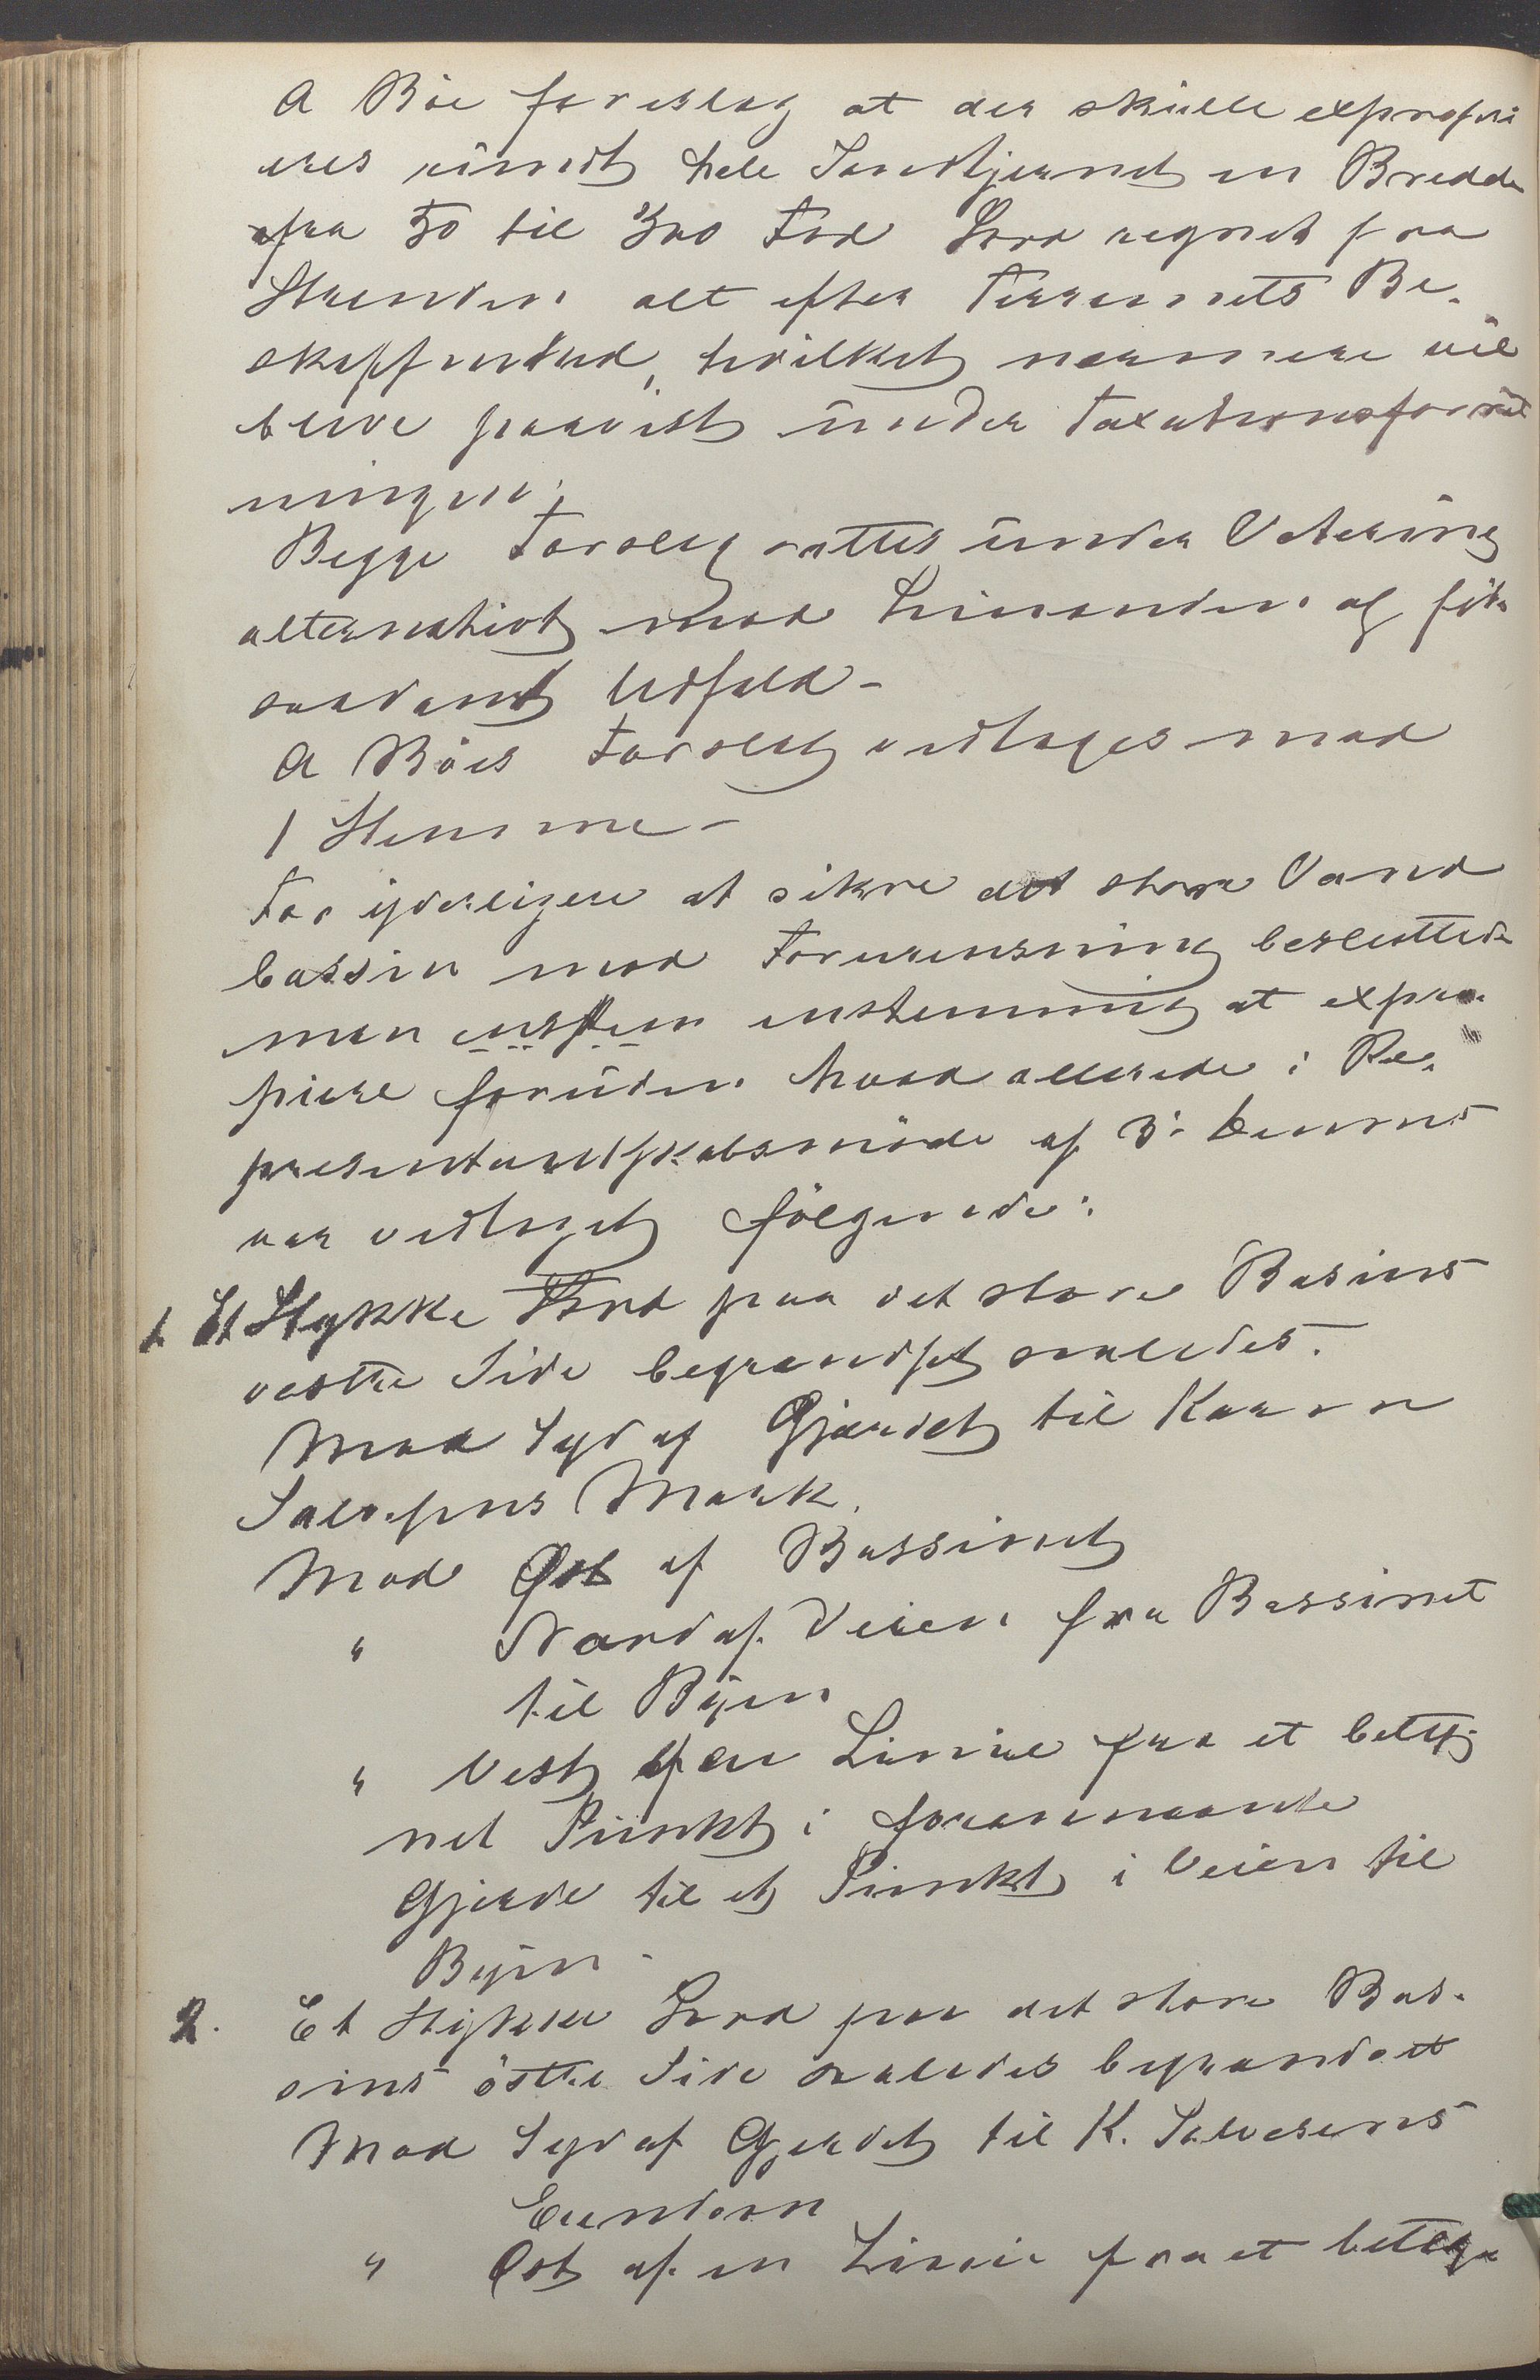 A Böe foreslog at der skulle expropri
eres rundt hele Tandtjernet en Bredde
fra 50 til 300 Fod Jord regnet fra
Stranden alt efter Terrainets Be-
skaffenhed, hvilket nærmere vil
blive paavist under Taxationsforret
ningen.
Begge Forslag sattes under Votering
alternativt mod hinanden af
saadant Udfald -
A Böes Forslag vedtoges mod
1 Stemme -
For yderligere at sikre det store Vand
bassin mod Forurensning besluttede
man enstem enstemmig at expro
piere foruden hvad allerede i Re-
presentantskabsmöde af 3. dennes
var vedtaget fölgende:
1. Et Stykke Jord paa det store Basins
vestre Side begrændset saaledes.
Mod Syd af Gjærdet til Karen
Salvesens Mark.
Mod Öst af Bassinet
" Nord af Veien fra Bassinet
til Byen
" Vest af en Linnie fra et beteg
net Punkt i forannævnte
Gjerde til et Punkt i Veien til
Byen.
2. Et Stykke Jord paa det store Bas-
sins östre Side saaledes begrændset
Mod Syd af Gjerdet til K. Salvesens
Eiendom
" Öst af en Linnie fra et betegn